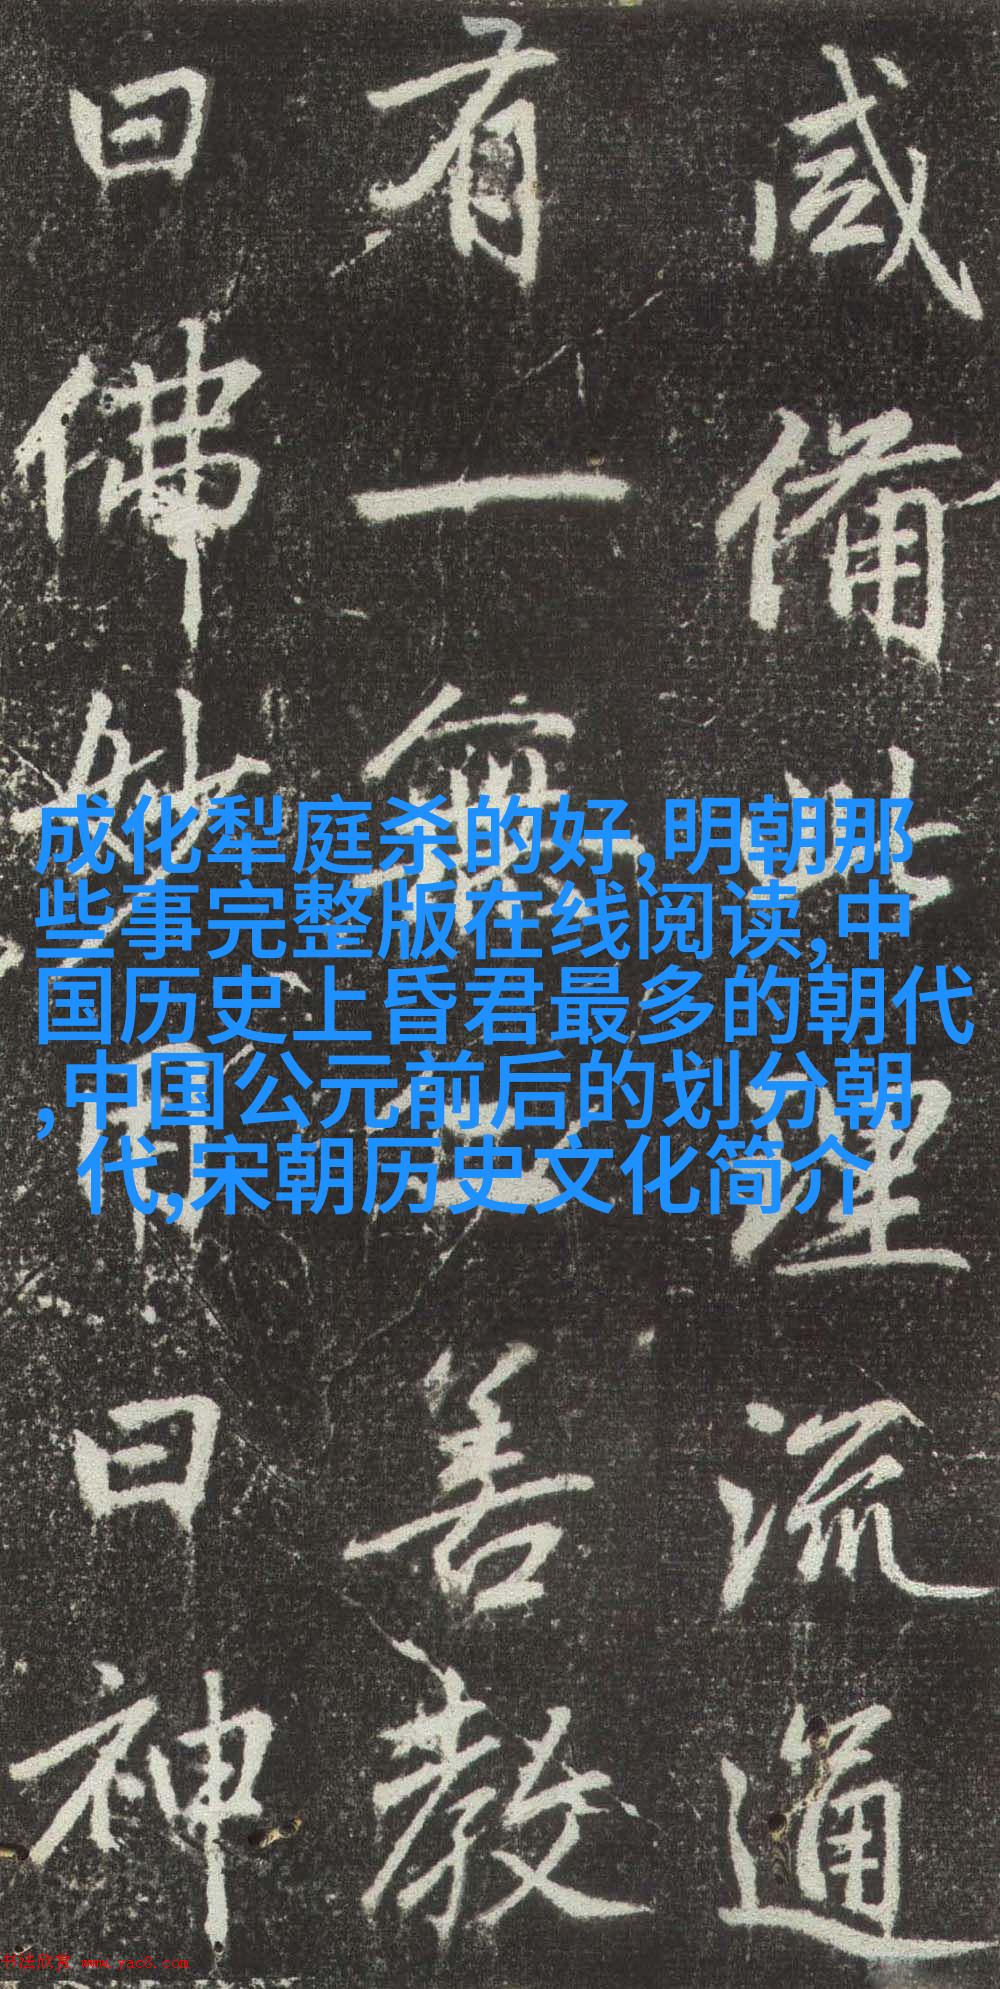 咸備此理流通
有一無善教
曰佛妙曰神
成化犁庭杀的好,明朝那
些事完整版在线阅读,中
国历史上昏君最多的朝代
,中国公元前后的划分朝
代,宋朝历史文化简介
书法欣赏 www.yac8.com